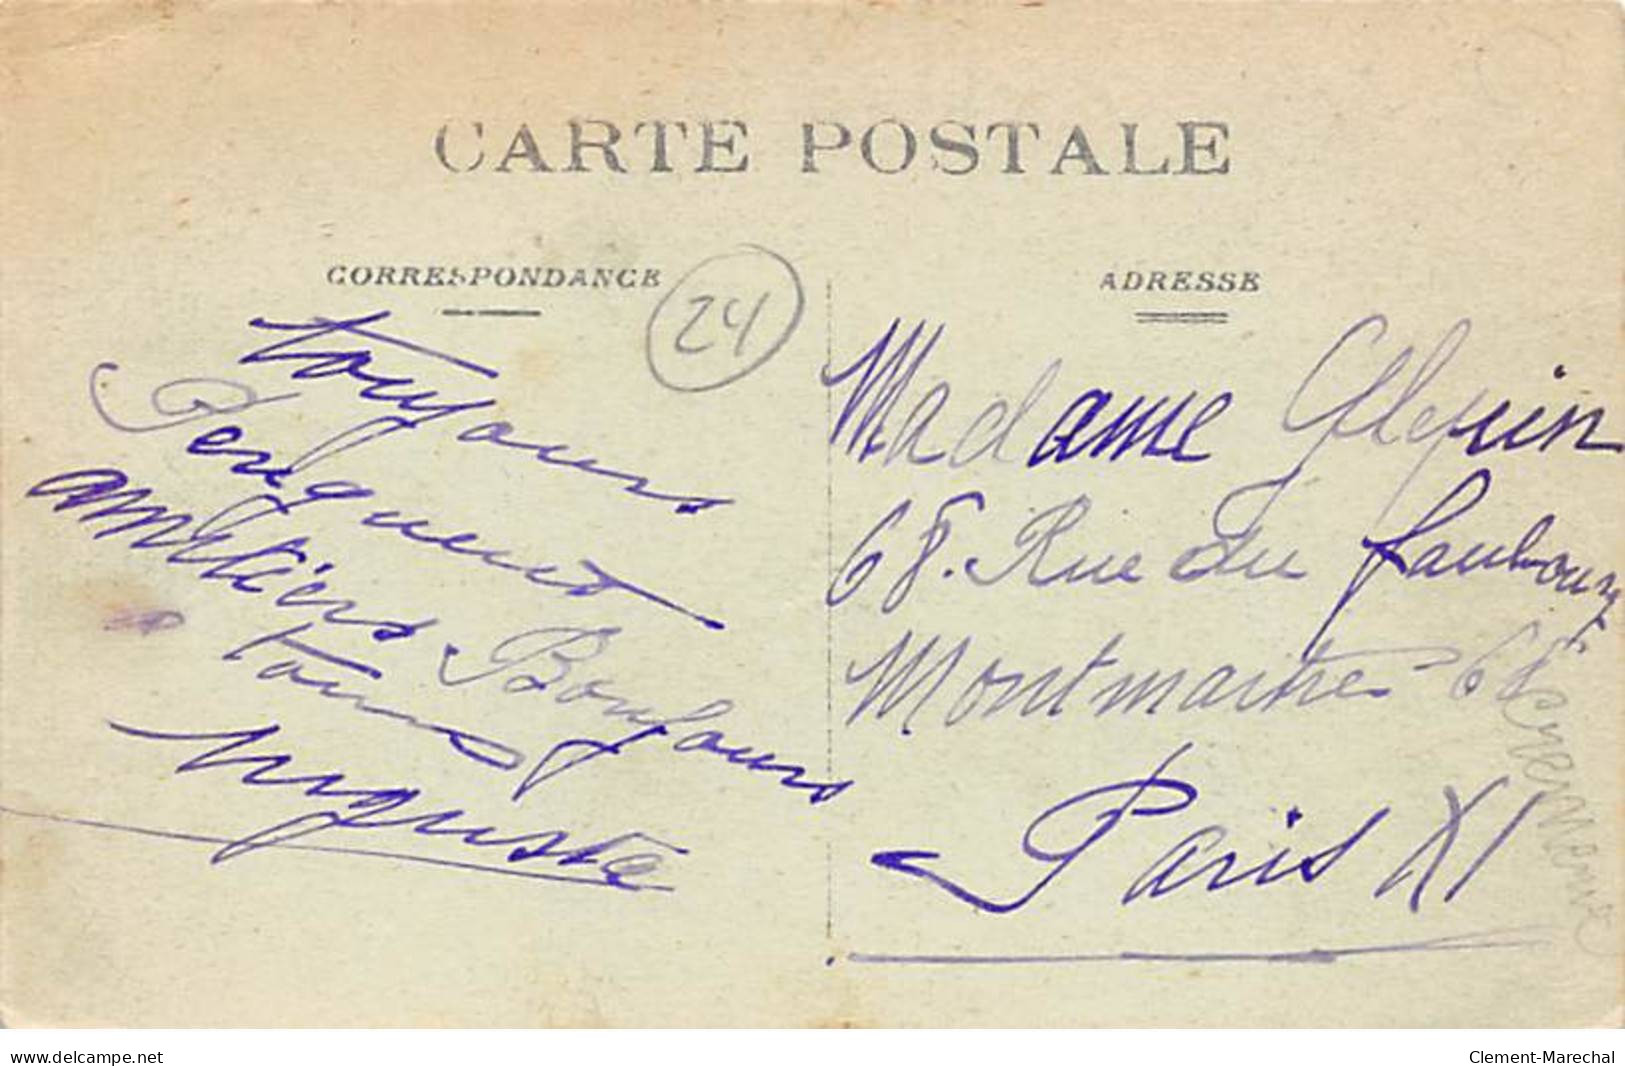 CARTE POSTALE
CORRESPONDANCE
24
toujours
amitiers Bonjours
tous
Auguste
ADRESSE
Madame
68. Rue du faubourg
Montmartre 68
Paris XI
www.delcampe.net
Clement-Marechal